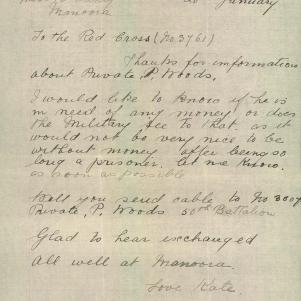 20 January
Manoora
To the Red Cross (No 3761)
Thanks for information
about Private P Woods.
I would like to know if he is
in need of any money or does
the Military see to that, as it
would not be very nice to be
without money after being so
long a prisoner. let me know.
as soon as possible
Will you send cable to No 3007
Private, P. Woods 50th Battalion
Glad to hear exchanged
all well at Manoora.
Love Kate.